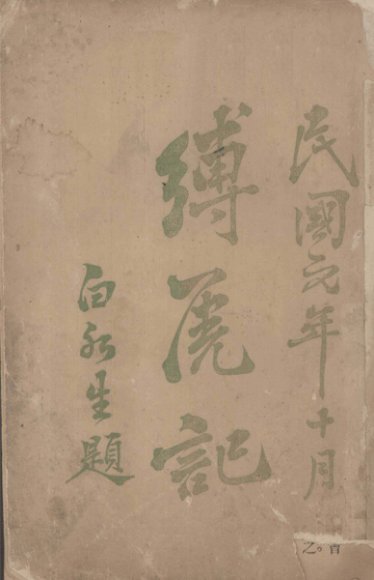 民國元年十月
縛虎記
白生題